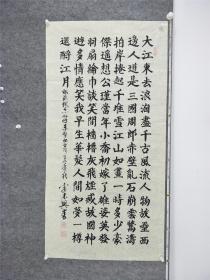 大江東去浪淘盡千古風流人物故壘西
邊人道是三國周郎赤壁亂石崩雲驚濤
拍岸捲起千堆雪江山如畫一時多少豪
傑遙想公瑾當年小喬初嫁了雄姿英發
羽扇綸巾談笑間檣櫓灰飛煙滅故國神
遊多情應笑我早生華髮人間如夢一樽
還酹江月